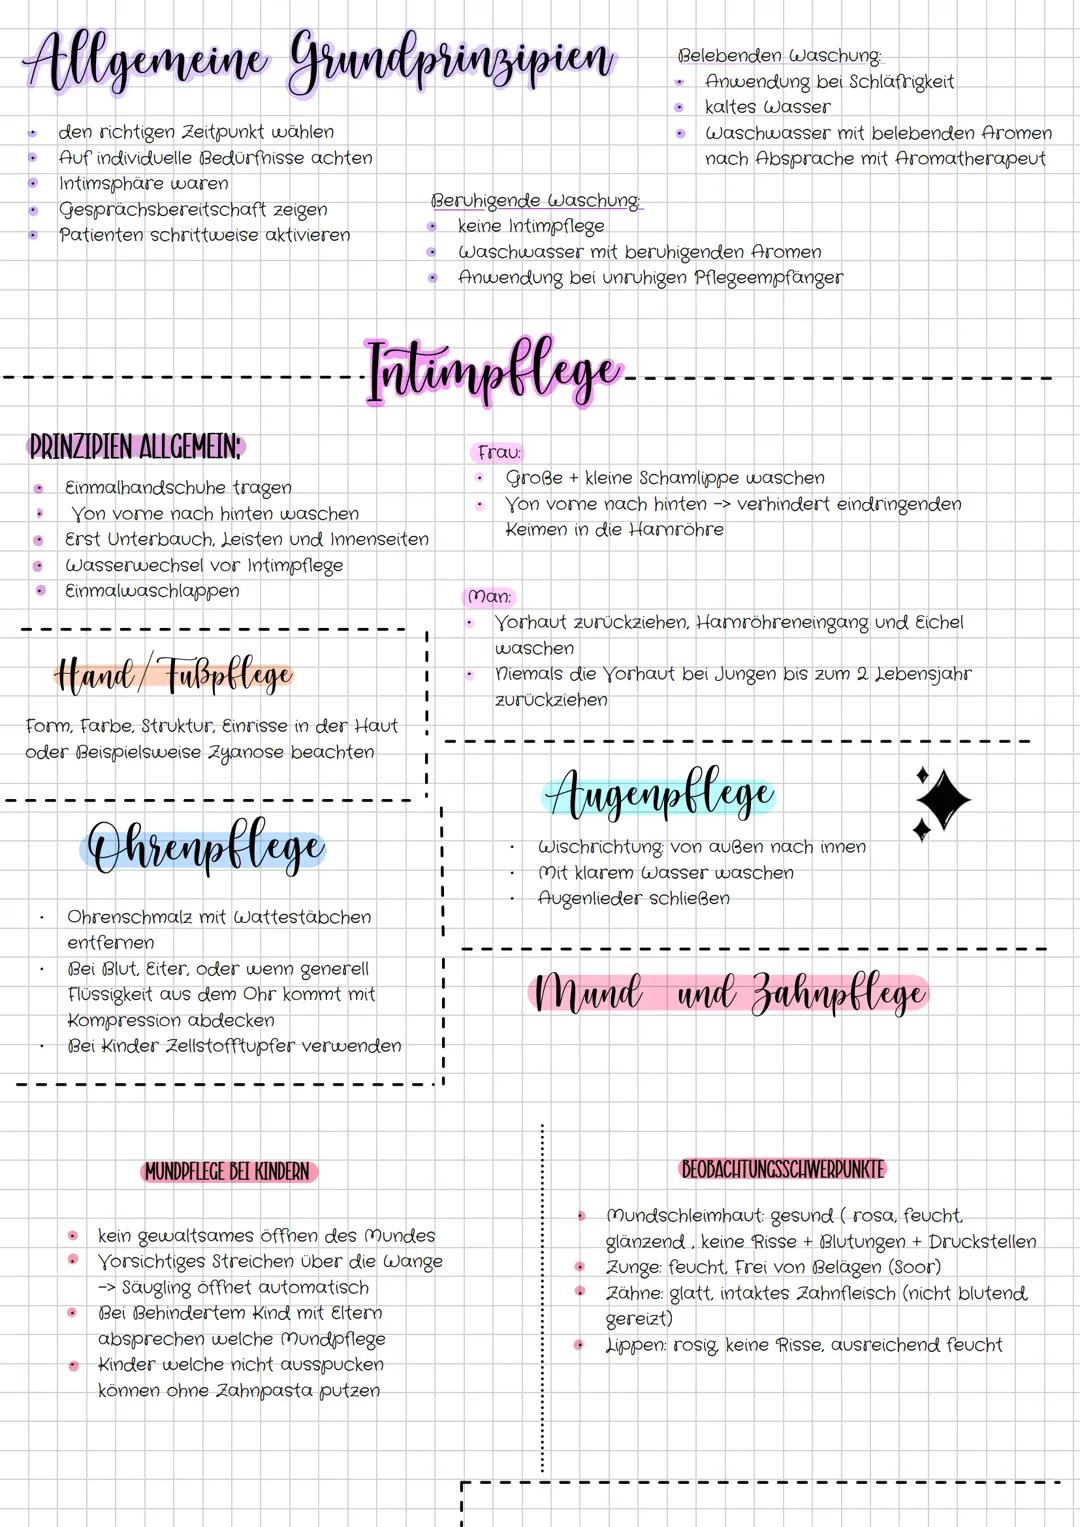 Allgemeine Grundprinzipien
den richtigen Zeitpunkt wählen
Auf individuelle Bedürfnisse achten
Intimsphäre waren
Gesprächsbereitschaft zeigen
Patienten schrittweise aktivieren
Belebenden Waschung:
Anwendung bei Schläfrigkeit
kaltes Wasser
Waschwasser mit belebenden Aromen
nach Absprache mit Aromatherapeut
Beruhigende Waschung:
keine Intimpflege
Waschwasser mit beruhigenden Aromen
Anwendung bei unruhigen Pflegeempfänger
Intimpflege
PRINZIPIEN ALLGEMEIN:
Einmalhandschuhe tragen
Von vorne nach hinten waschen
Erst Unterbauch, Leisten und Innenseiten
Wasserwechsel vor Intimpflege
Einmalwaschlappen
Frau:
Große + kleine Schamlippe waschen
Von vorne nach hinten -> verhindert eindringenden
Keimen in die Harnröhre
Man:
Vorhaut zurückziehen, Harnröhreneingang und Eichel
waschen
Niemals die Vorhaut bei Jungen bis zum 2. Lebensjahr
zurückziehen
Hand/ Fußpflege
Form, Farbe, Struktur, Einrisse in der Haut
oder Beispielsweise Zyanose beachten
Augenpflege
Wischrichtung: von außen nach innen
Mit klarem Wasser waschen
Augenlieder schließen
Ohrenpflege
Ohrenschmalz mit Wattestäbchen
entfernen
Bei Blut, Eiter, oder wenn generell
Flüssigkeit aus dem Ohr kommt mit
Kompression abdecken
Bei Kinder Zellstofftupfer verwenden
Mund und Zahnpflege
MUNDPFLEGE BEI KINDERN
kein gewaltsames öffnen des Mundes
Vorsichtiges Streichen über die Wange
-> Säugling öffnet automatisch
Bei Behindertem Kind mit Eltern
absprechen welche Mundpflege
Kinder welche nicht ausspucken
können ohne Zahnpasta putzen
BEOBACHTUNGSSCHWERPUNKTE
Mundschleimhaut: gesund ( rosa, feucht,
glänzend , keine Risse + Blutungen + Druckstellen
Zunge: feucht, Frei von Belägen (Soor)
Zähne: glatt, intaktes Zahnfleisch (nicht blutend,
gereizt)
Lippen: rosig, keine Risse, ausreichend feucht